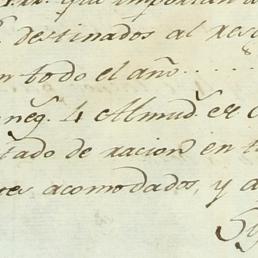 que importan
destinados al res
n todo el año.....
neg. 4 Almud.s
tado de racion en t
res acomodados, y a